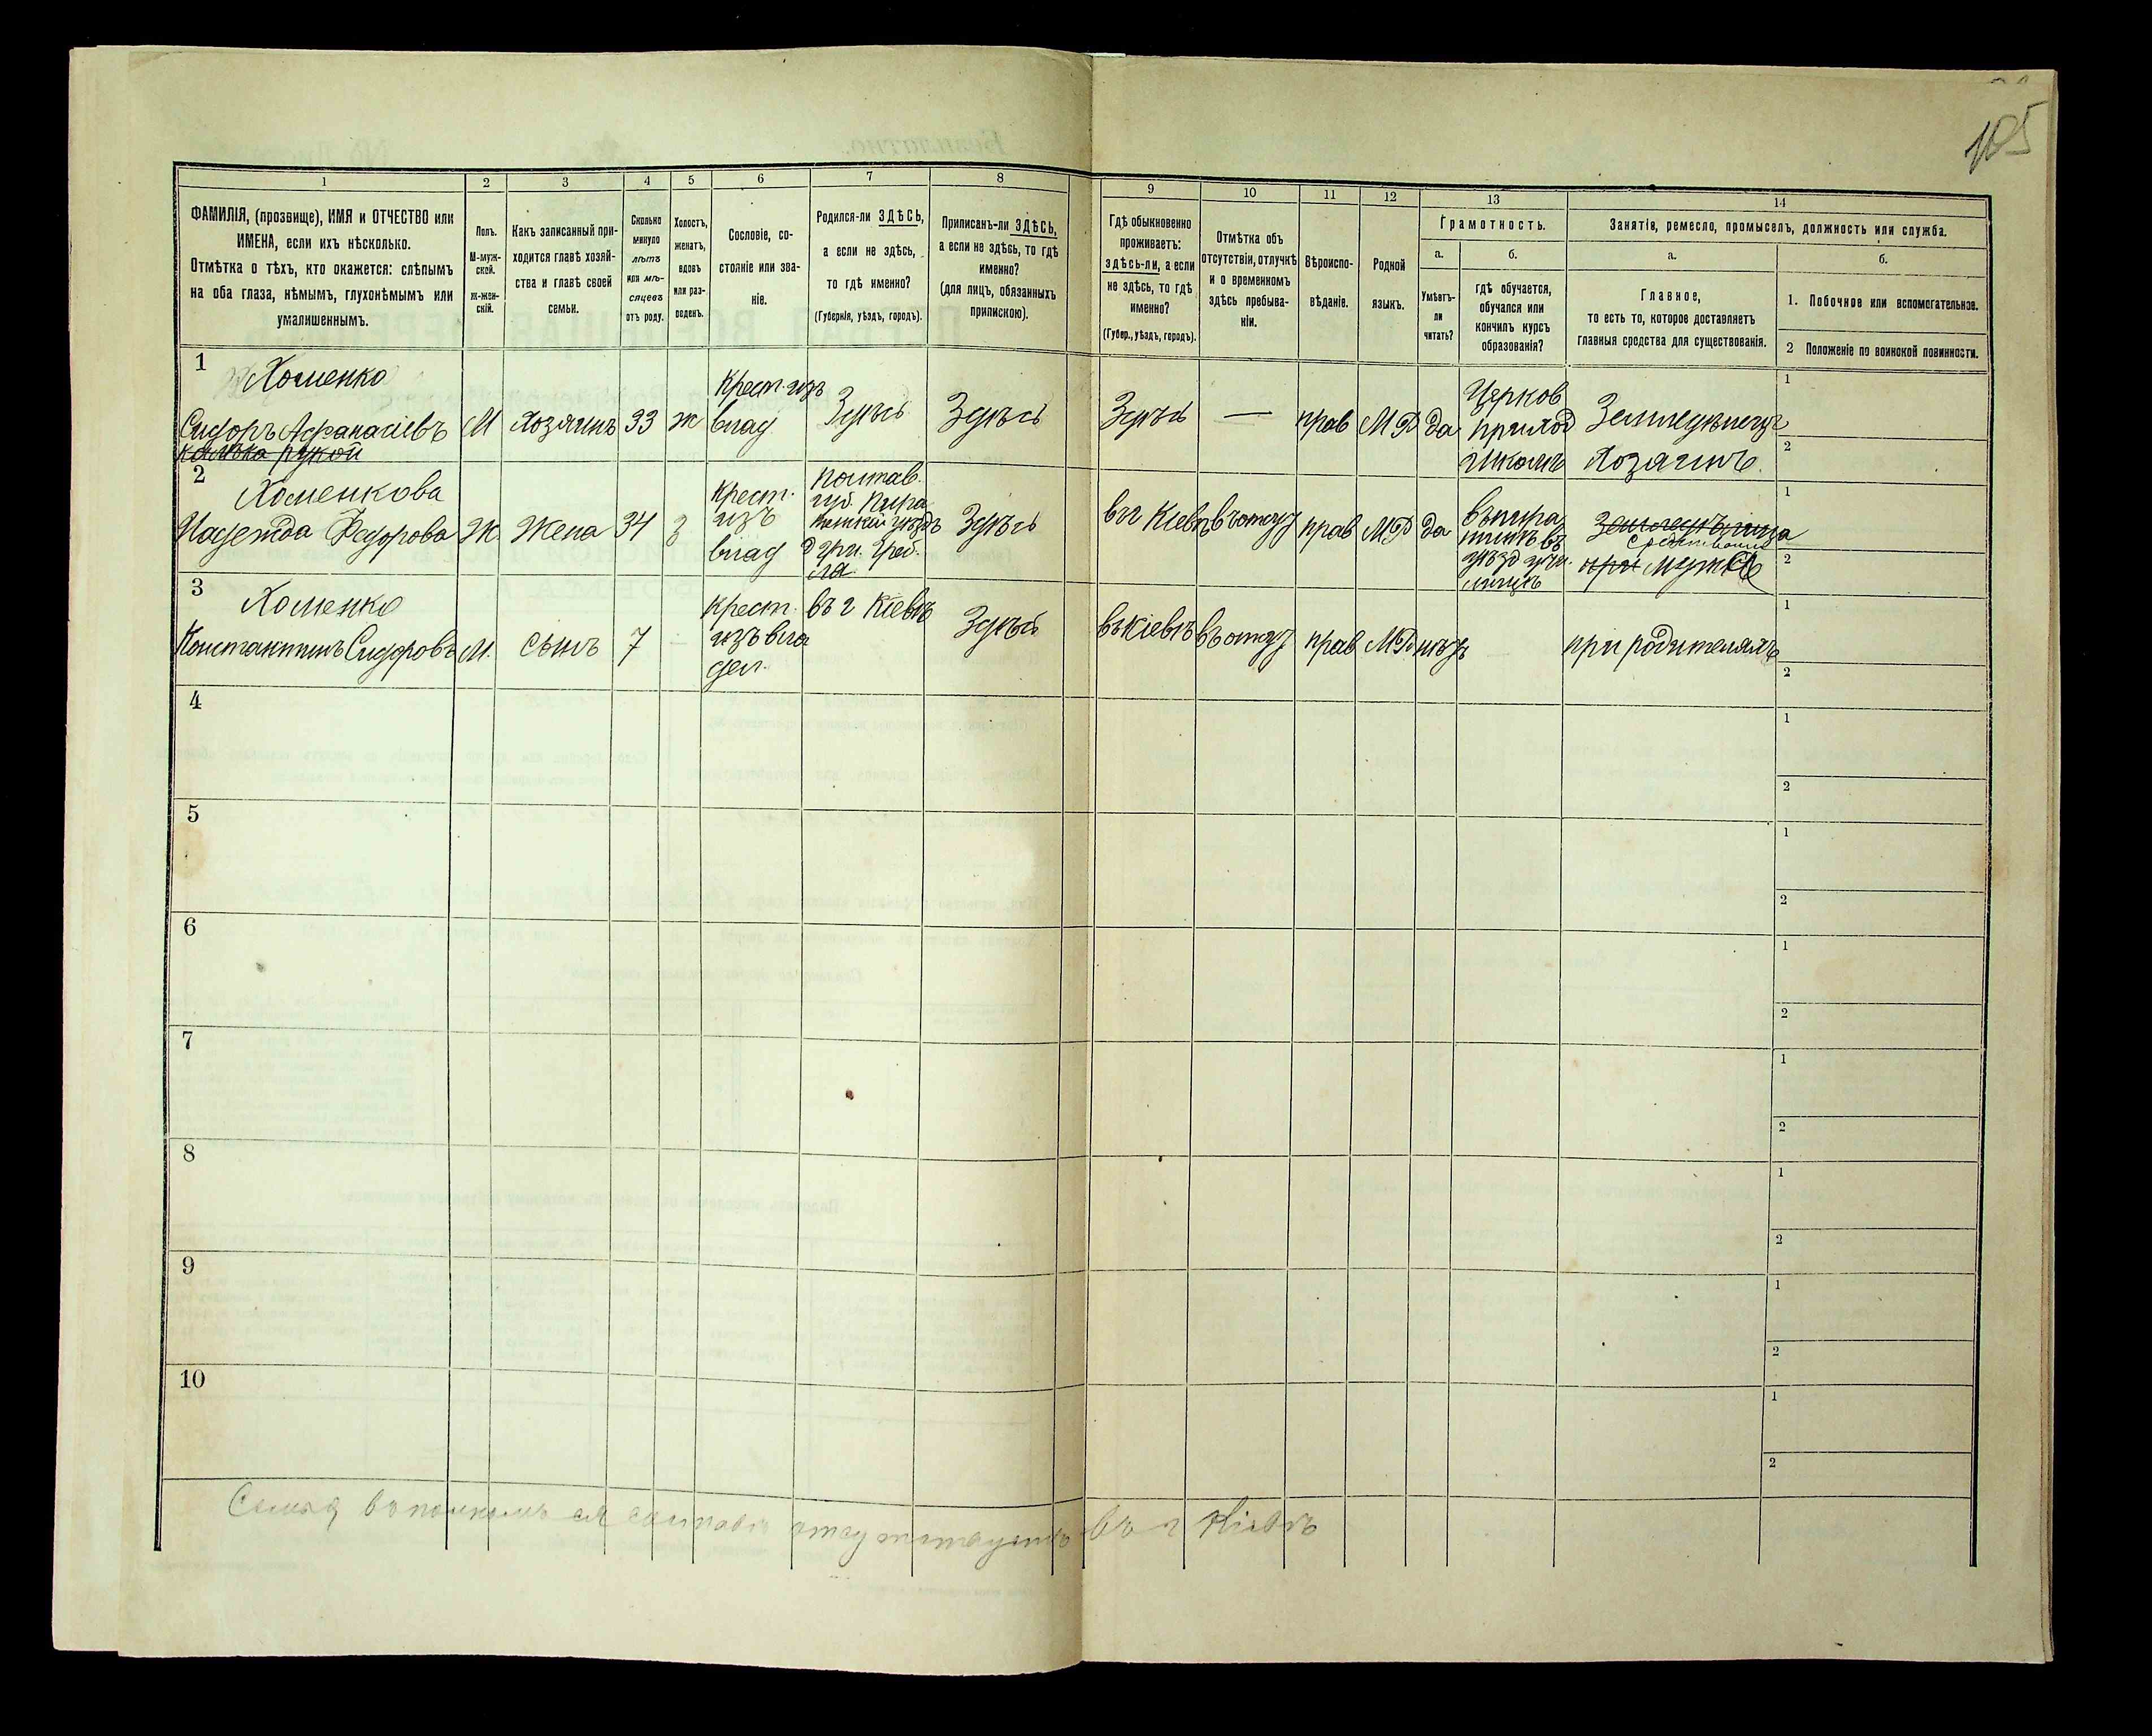 105
1 2 3 4 5 6 7 8 9 10 11 12 13 14
ФАМИЛІЯ, (прозвище), ИМЯ и ОТЧЕСТВО или
ИМЕНА, если ихъ нѣсколько.
Отмѣтка о тѣхъ, кто окажется: слѣпымъ
на оба глаза, нѣмымъ, глухонѣмымъ или
умалишеннымъ.
Полъ.
М-муж-
ской.
Ж-жен-
скій.
Какъ записанный при-
ходится главѣ хозяй-
ства и главѣ своей
семьи.
Сколько
минуло
лѣтъ
или мѣ-
сяцевъ
отъ роду.
Холостъ,
женатъ,
вдовъ
или раз-
веденъ.
Сословіе, со-
стояніе или зва-
ніе.
Родился-ли ЗДѢСЬ,
а если не здѣсь,
то гдѣ именно?
(Губернія, уѣздъ, городъ).
Приписанъ-ли ЗДѢСЬ,
а если не здѣсь, то гдѣ
именно?
(для лицъ, обязанныхъ
припискою).
Гдѣ обыкновенно
проживаетъ:
здѣсь-ли, а если
не здѣсь, то гдѣ
именно?
(Губер., уѣздъ, городъ).
Отмѣтка объ
отсутствіи, отлучкѣ
и о временномъ
здѣсь пребыва-
ніи.
Вѣроиспо-
вѣданіе.
Родной
языкъ.
Грамотность.
а.
Умѣетъ-
ли
читать?
б.
гдѣ обучается,
обучался или
кончилъ курсъ
образованія?
Занятія, ремесло, промыселъ, должность или служба.
а.
Главное,
то есть то, которое доставляетъ
главныя средства для существованія.
б.
1. Побочное или вспомогательное.
2 Положеніе по воинской повинности.
1
Хоменко
Сидоръ Афанасіевъ
калѣка рукой
М
Хозяинъ
33
ж
крест. изъ
влад
Здѣсь
Здѣсь
Здѣсь
—
прав
МР
да
Церков
приход
школѣ
Земледѣлецъ
Хозяинъ
1
2
2
Хоменкова
Надежда Федорова
Ж.
Жена
34
З
крест.
изъ
влад
Полтав.
губ. Пиря
тинскій уѣздъ
Здѣсь
въ г Кіевѣ
въ отсут
прав
МР
да
уѣзд учи
лищѣ
Земледѣлица
при мужѣ
1
2
3
Хоменко
Константинъ Сидоровъ
М.
сынъ
7
—
крест.
изъ вла
дел.
въ г Кіевѣ
Здѣсь
въ Кіевѣ
въ отсут
прав
МР
нѣтъ
—
при родителяхъ
1
2
4
1
2
5
1
2
6
1
2
7
1
2
8
1
2
9
1
2
10
1
2
Семья въ полномъ ея составѣ отсутствуетъ въ г Кіевѣ